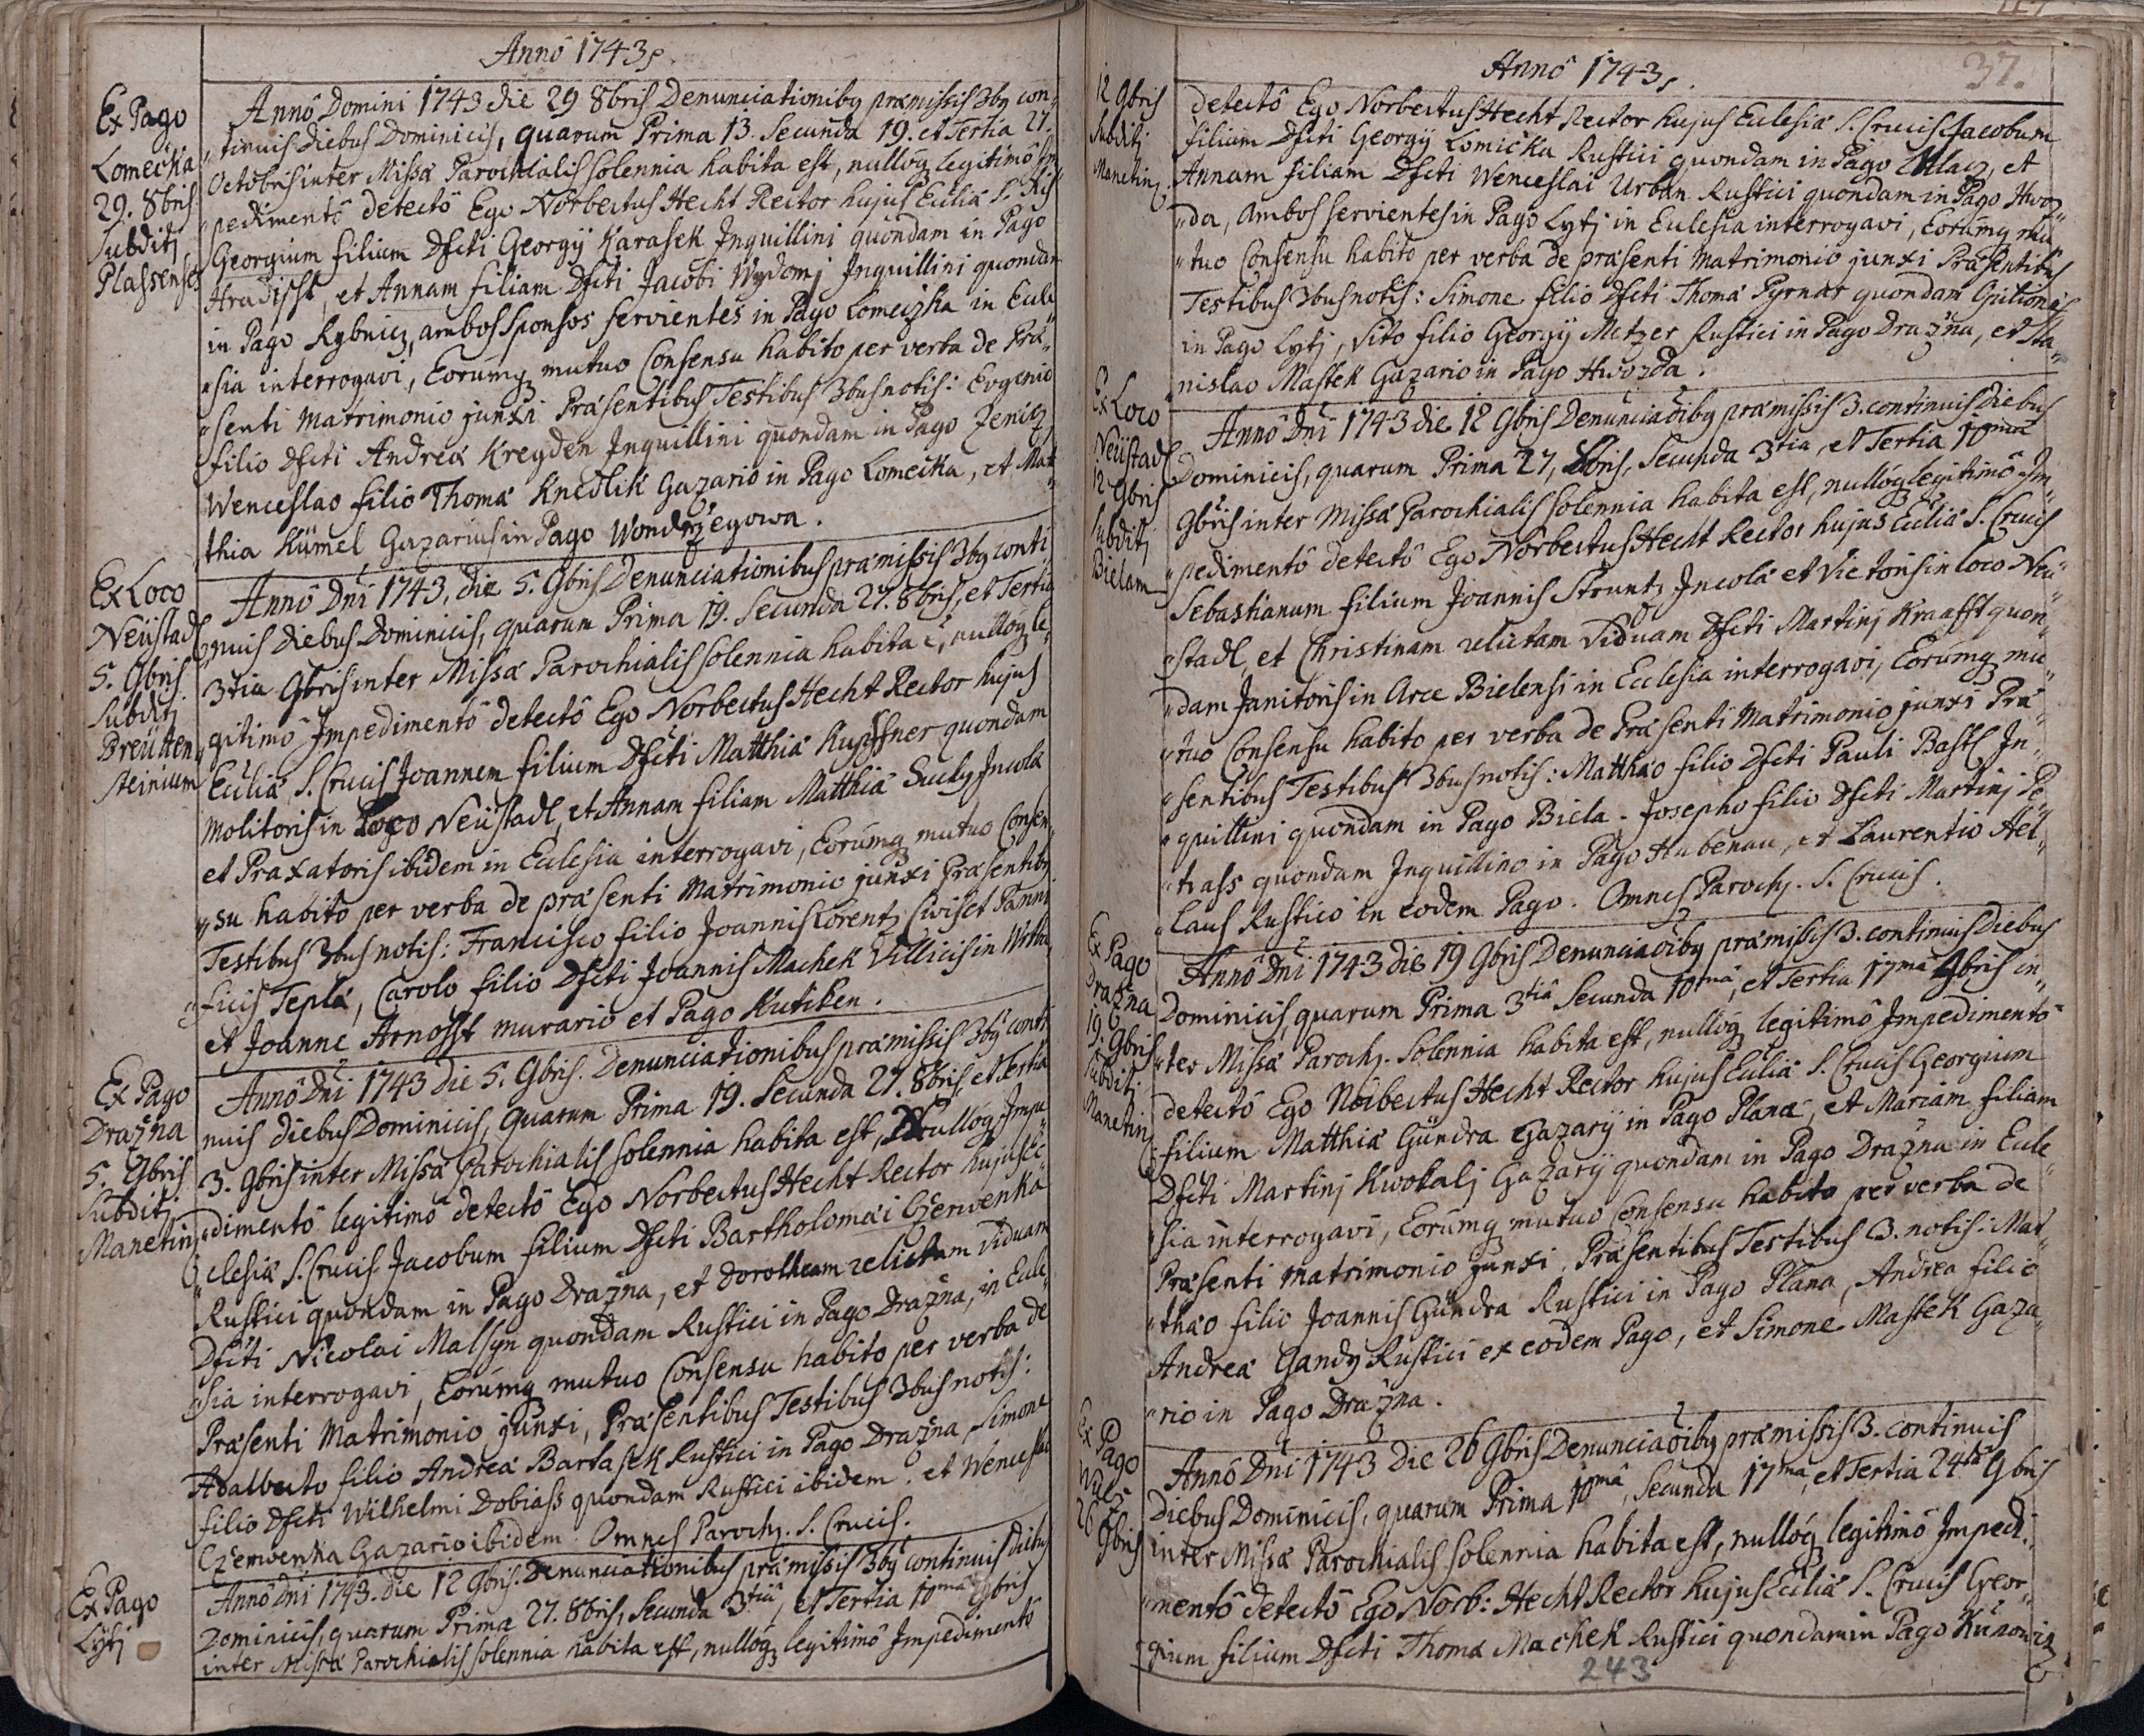 Anno 1743
Ex Pago
Lomečka
29. 8bris
Subditj
Plassenses
Anno Domini 1743 die 29 8bris Denunciationibq præmissis 3bq con-
tinuis diebus Dominicis, quarum Prima 13. Secunda 19. et Tertia 27.
Octobris inter Missæ Parochialis solennia habita est, nulloq legitimo Im-
pedimento detecto Ego Norbertus Hecht Rector hujus Ecliæ S.
Georgium filium Dfcti Georgÿ Karasek Inquillini quondam in Pago
Hradischt, et Annam filiam Dfcti Jacobi Wydomj Inquillini quondam
in Pago Rybnicz, ambos Sponsos servientes in Pago Lomeczka in Eccle-
sia interrogavi, Eorumq mutuo Consensu habito per verba de Præ-
senti Matrimonio junxi Præsentibus Testibus 3bus notis: Evgenio
filio Dfcti Andreæ Kreyden Inquillini quondam in Pago Zenicz,
Wenceslao filio Thomæ Knedlik Gazario in Pago Lomečka, et Mat-
thia Kümel Gazarius in Pago Wondržegowa.
Ex Loco
Neüstadl
5. 9bris
Subditj
Breütten
steinium
Anno Dni 1743, die 5. 9bris Denunciationibus præmissis 3bq conti-
nuis diebus Dominicis, quarum Prima 19. Secunda 27. 8bris, et Tertia
3tia 9bris inter Missæ Parochialis solennia habita ẽ, nulloq le-
gitimo Impedimento detecto Ego Norbertus Hecht Rector hujus
Ecliæ S. Crucis Joannem filium Dfcti Matthiæ Kupffner quondam
Molitoris in Loco Neüstadl, et Annam filiam Matthiæ Suchy Incolæ
et Praxatoris ibidem in Ecclesia interrogavi, Eorumq mutuo Consen-
su habito per verba de præsenti Matrimonio junxi Præsentibq
Testibus 3bus notis: Francisco filio Joannis Lorentz Civis et Panni
ficis Teplæ, Carolo filio Dfcti Joannis Machek Villicis in
et Joanne Arnosst murario et Pago Kutiken.
Ex Pago
Dražna
5. 9bris
Subditj
Manetin
Anno Dni 1743 die 5. 9bris. Denunciationibus præmissis 3bq conti-
nuis diebus Dominicis, quarum Prima 19. Secunda 27. 8bris, et Tertia
3. 9bris inter Missæ Parochialis solennia habita est, Nulloq Impe-
dimento legitimo detecto Ego Norbertus Hecht Rector hujus Ec-
clesiæ S. Crucis Jacobum filium Dfcti Bartholomæi Czerwenka
Rustici quondam in Pago Dražna, et Dorotheam relictam Viduam
Dfcti Nicolai Malsyn quondam Rustici in Pago Dražna, in Eccle-
sia interrogavi, Eorumq mutuo Consensu habito per verba de
Præsenti Matrimonio junxi, Præsentibus Testibus 3bus notis:
Adalberto filio Andreæ Bartasek Rustici in Pago Dražna Simone
filio Dfcti Wilhelmi Dobiass quondam Rustici ibidem. et Wenceslao
Czerwenka Gazario ibidem. Omnes Paroch. S. Crucis.
Ex Pago
Lytj
Anno Dni 1743. die 12 9bris. Denunciationibus præmissis 3bq continuis diebus
Dominicis, quarum Prima 27. 8bris, Secunda 3tia, et Tertia 10ma 9bris
inter Missæ Parochialis solennia habita est, nulloq legitimo Impedimento
Anno 1743
37.
12 9bris
Subditj
Manetin
detecto Ego Norbertus Hecht Rector hujus Eclesiæ S. Crucis Jacobum
filium Dfcti Georgÿ Lomička Rustici quondam in Pago Chlacz, et
Annam filiam Dfcti Wenceslai Urban Rustici quondam in Pago Hwoz-
da, ambos servientes in Pago Lytj in Ecclesia interrogavi, Eorumq mu-
tuo Consensu habito per verba de præsenti Matrimonio junxi Præsentibus
Testibus 3bus notis: Simone filio Dfcti Thomæ Pyrnar quondam Opilionis
in Pago Lytj, Vito filio Georgÿ Metzer Rustici in Pago Dražna, et Sta-
nislao Mastek Gazario in Pago Hwozda.
Ex Loco
Neüstadl
12 9bris
Subditj
Bielam
Anno Dni 1743 die 12 9bris Denunciaõibq præmissis 3. continuis Diebus
Dominicis, quarum Prima 27, 8bris, Secunda 3tia, et Tertia 10ma
9bris inter Missæ Parochialis solennia habita est, nulloq legitimo Im-
pedimento detecto Ego Norbertus Hecht Rector hujus Ecliæ S. Crucis
Sebastianum filium Joannis Struntz Incolæ et Victoris in Loco Neü-
stadl, et Christinam relictam Viduam Dfcti Martinj Kraafft quon-
dam Janitoris in Arce Bielensi in Ecclesia interrogavi, Eorumq mu-
tuo Consensu habito per verba de Præsenti Matrimonio junxi Præ-
sentibus Testibus 3bus notis: Matthæo filio Dfcti Pauli Bastl In-
quillini quondam in Pago Biela. Josepho filio Dfcti Martinj Pe-
trass quondam Inquillino in Pago Hubenau, et Laurentio Hel-
laus Rustico in eodem Pago. Omnes Paroch. S. Crucis.
Ex Pago
Dražna
19. 9bris
Subditj
Manetin
Anno Dni 1743 die 19 9bris Denunciaõibq præmissis 3. continuis Diebus
Dominicis, quarum Prima 3tia Secunda 10ma, et Tertia 17ma 9bris in-
ter Missæ Paroch. Solennia habita est, nulloq legitimo Impedimento
detecto Ego Norbertus Hecht Rector hujus Ecliæ S. Crucis Georgium
filium Matthiæ Gündra Gazarÿ in Pago Plana, et Mariam filiam
Dfcti Martinj Kwokalj Gazarÿ quondam in Pago Dražna in Eccle-
sia interrogavi, Eorumq mutuo Consensu habito per verba de
Præsenti Matrimonio junxi, Præsentibus Testibus 3. notis: Mat-
thæo filio Joannis Gündra Rustici in Pago Plana, Andrea filio
Andreæ Gandy Rustici ex eodem Pago, et Simone Mastek Gaza-
rio in Pago Dražna.
Ex Pago
26
9bris
Anno Dni 1743 Die 26 9bris Denunciaõibq præmissis 3. continuis
Diebus Dominicis, quarum Prima 10ma, Secunda 17ma, et Tertia 24ta 9bris
inter Missæ Parochialis solennia habita est, nulloq legitimo Impedi-
mento detecto Ego Norb: Hecht Rector hujus Ecliæ S. Crucis Geor-
gium filium Dfcti Thomæ Machek Rustici quondam in Pago Kunowicz
243